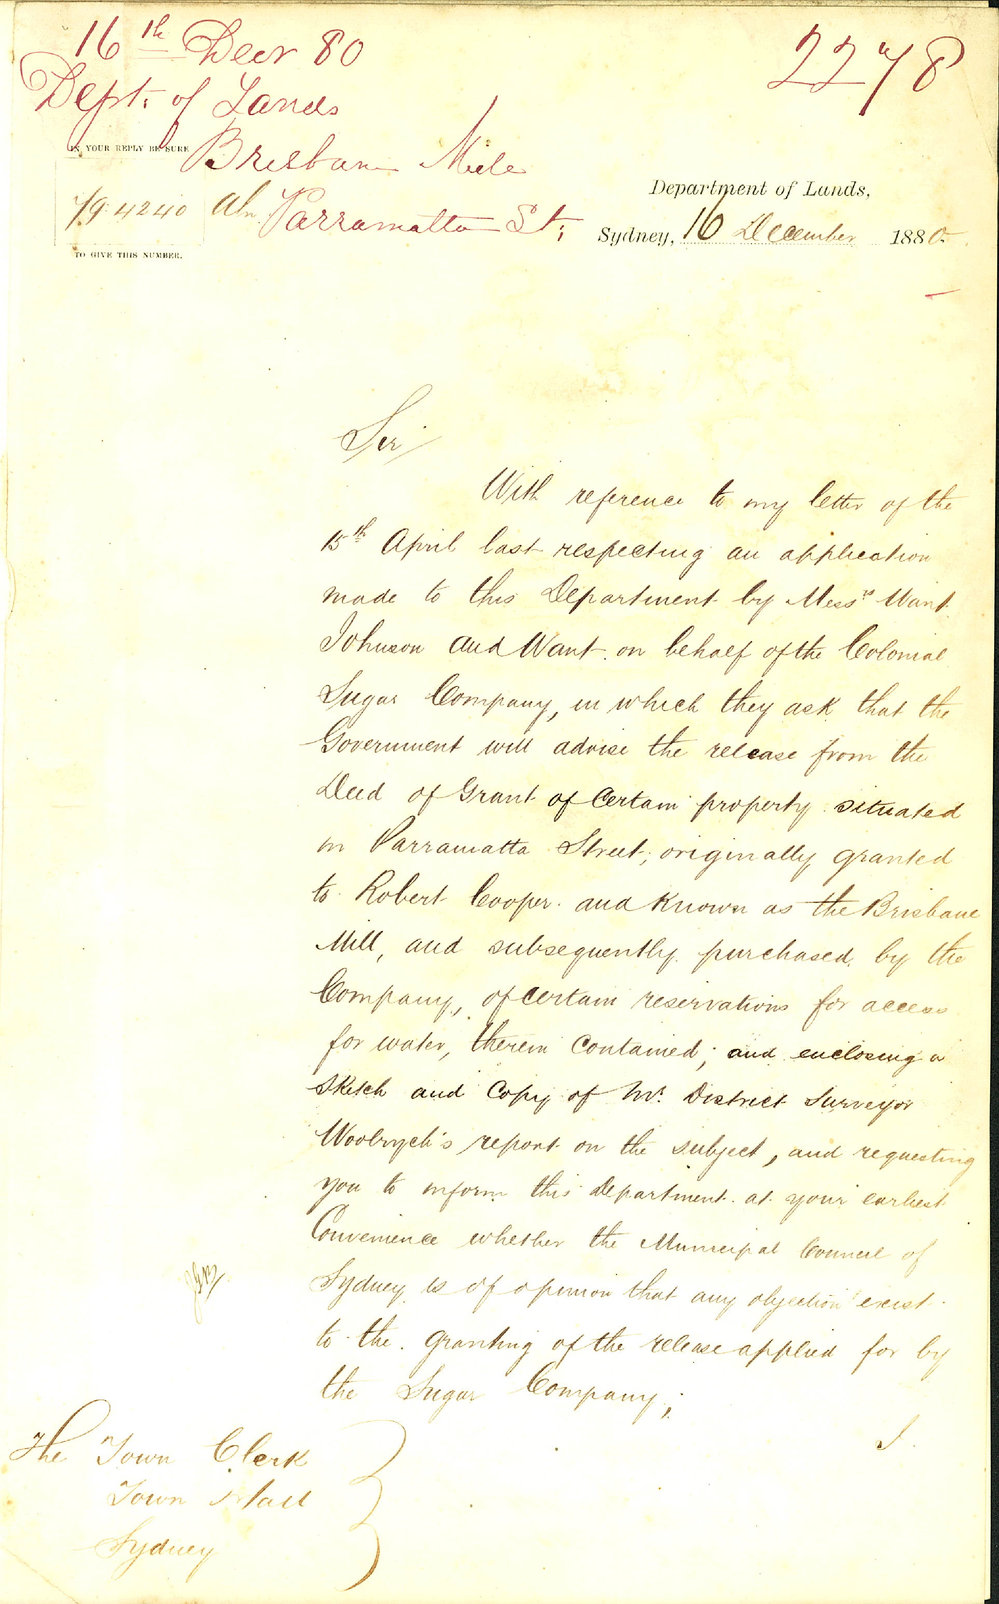 16th Decr 80
2278
Dept. of Lands
IN YOUR REPLY BE SURE
Brisbane Mill
79.4240 Aln
Parramatta St;
TO GIVE THIS NUMBER.
Department of Lands,
Sydney, 16 December 1880.
Sir
With reference to my letter of the
15th April last respecting an application
made to this Department by Messrs Want
Johnson and Want on behalf of the Colonial
Sugar Company, in which they ask that the
Government will advise the release from the
Deed of Grant of certain property situated
in Parramatta Street, originally granted
to Robert Cooper and known as the Brisbane
Mill, and subsequently purchased by the
Company, of certain reservations for access
for water, therein contained; and enclosing a
Sketch and Copy of Mr. District Surveyor
Woolrych's report on the subject, and requesting
you to inform this Department at your earliest
Convenience whether the Municipal Council of
Sydney is of opinion that any objection exist
to the granting of the release applied for by
the Sugar Company;
I
The Town Clerk
Town Hall
Sydney